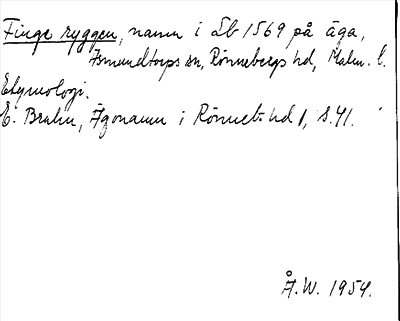 Finge ryggen, namn i Lb 1569 på äga,
Asmundtorps sn, Rönnebergs hd, Malm. l.
Etymologi.
E. Brahn, Ägonamn i Rönneb. hd 1, s. 41.
Å.W. 1954.